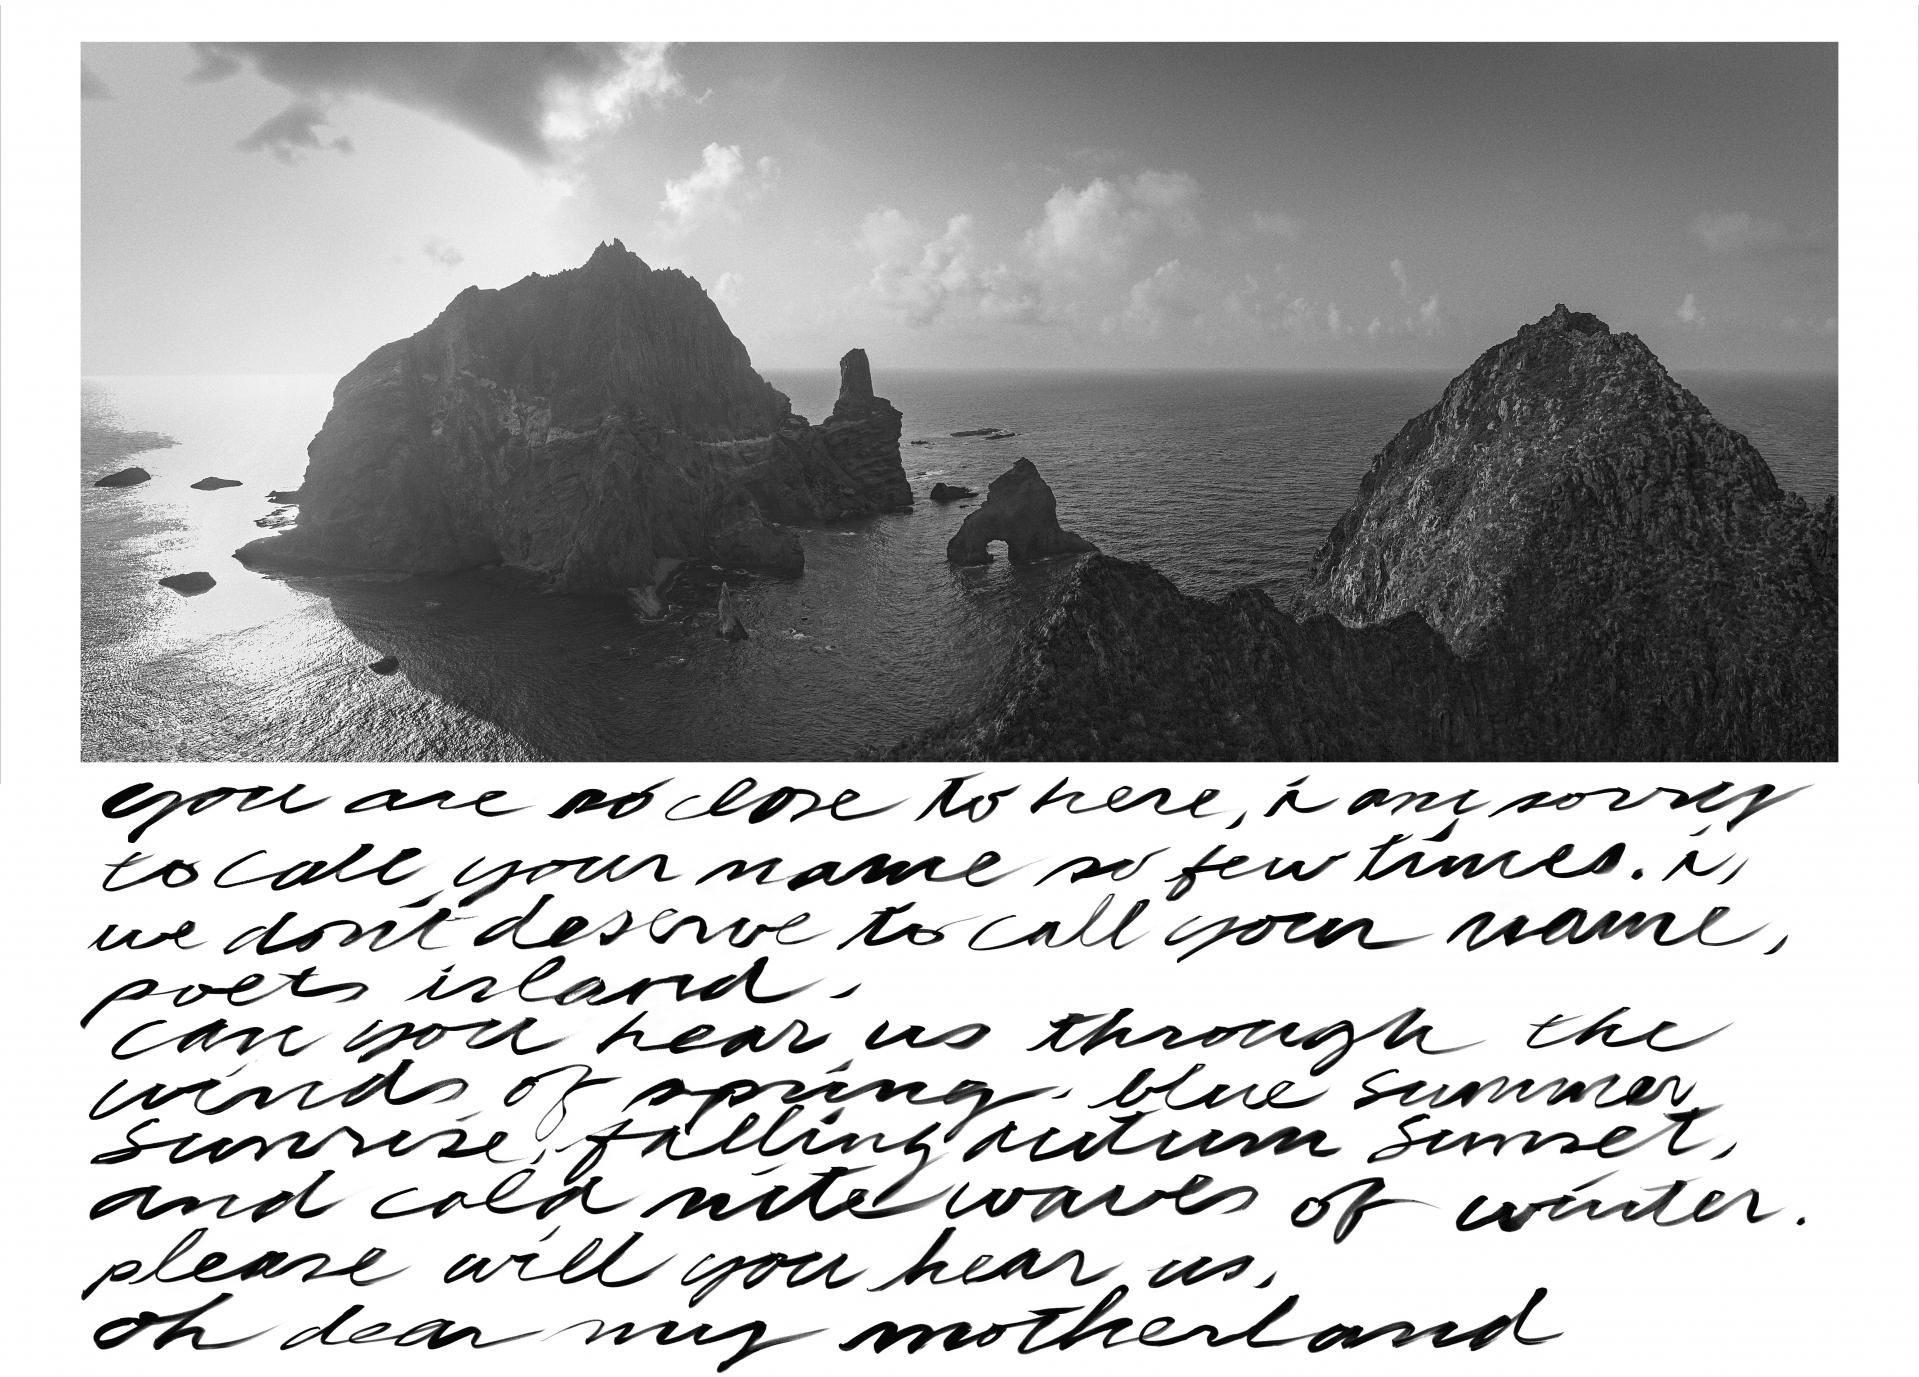 you are so close to here, i am sorry
to call your name so few times. i,
we don't deserve to call your name,
poets island,
can you hear us through the
winds of spring, blue summer
sunrise, falling autum sunset,
and cold nite waves of winter.
please will you hear us,
oh dear my motherland